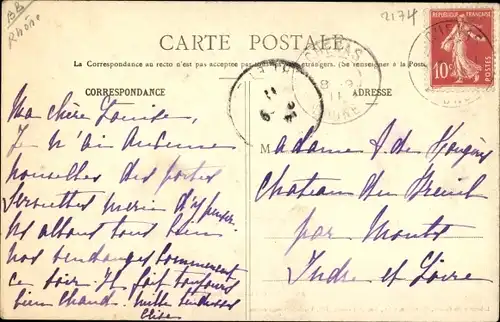 BB
Rhône
2174
CARTE POSTALE
La Correspondance au recto n'est pas acceptée par
étrangers. (Se renseigner à la Poste)
RÉPUBLIQUE FRANÇAISE
10c
POSTES
CORRESPONDANCE
ADRESSE
Ma chère Louise,
Je n'ai aucune
nouvelles des portes
serviettes merci d'y penser.
Ns allons tous bien
nos vendanges commencent
ce soir. Il fait toujours
bien chaud. Mille tendresses
Elise
Madame S. de
Chateau du Breuil
par Monts
Indre et Loire